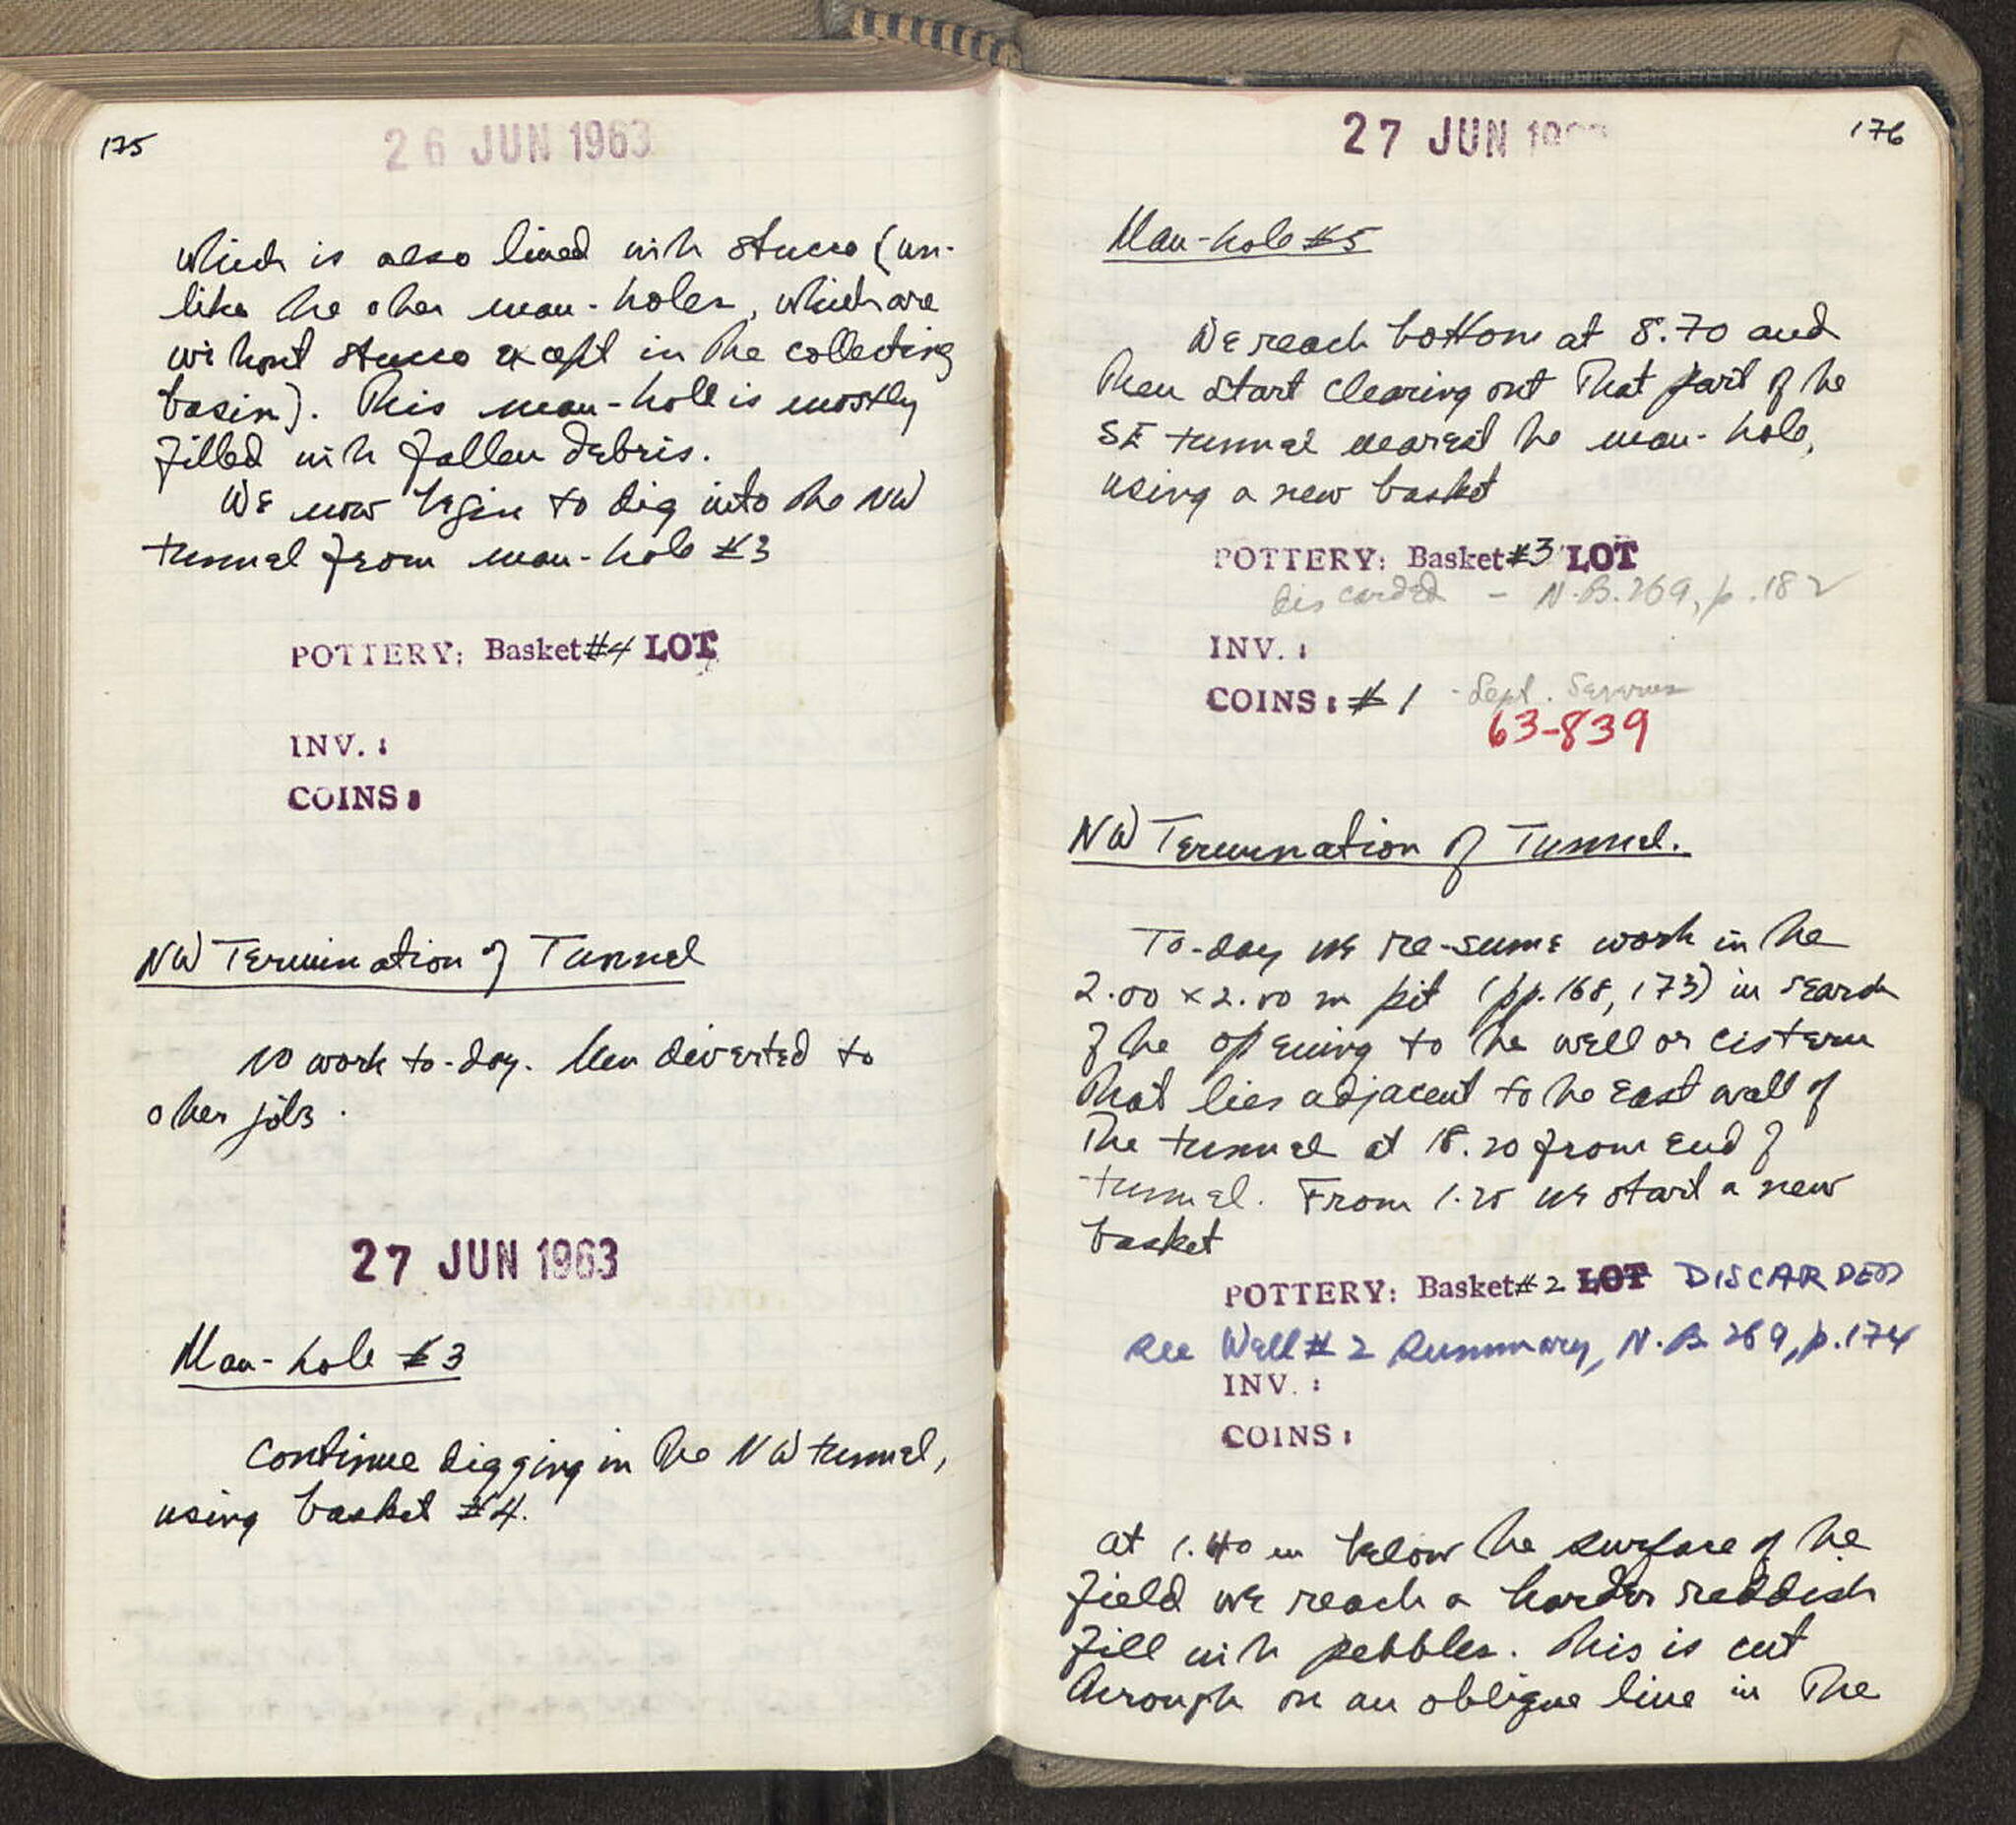 175
26 JUN 1963
which is also lined with stucco (un-
like the other man-holes, which are
without stucco except in the collecting
basin). This man-hole is mostly
filled with fallen debris.
We now begin to dig into the NW
tunnel from man-hole #3
POTTERY: Basket #4 LOT
INV. :
COINS :
NW Termination of Tunnel
No work to-day. Men diverted to
other jobs.
27 JUN 1963
Man-hole #3
Continue digging in the NW tunnel,
using basket #4.
176
27 JUN 1963
Man-hole #5
We reach bottom at 8.70 and
then start clearing out that part of the
SE tunnel nearest the man-hole,
using a new basket
POTTERY: Basket #3 LOT
discarded - N.B. 269, p. 182
INV. :
COINS : #1 - Sept. Severus
63-839
NW Termination of Tunnel.
To-day we re-sume work in the
2.00 x 2.00 m pit (pp. 168, 173) in search
of the opening to the well or cistern
that lies adjacent to the east wall of
the tunnel at 18.20 from end of
tunnel. From 1.25 we start a new
basket
POTTERY: Basket #2 LOT DISCARDED
see Well #2 Summary, N.B. 269, p. 174
INV. :
COINS :
At 1.40 m below the surface of the
field we reach a harder reddish
fill with pebbles. This is cut
through on an oblique line in the